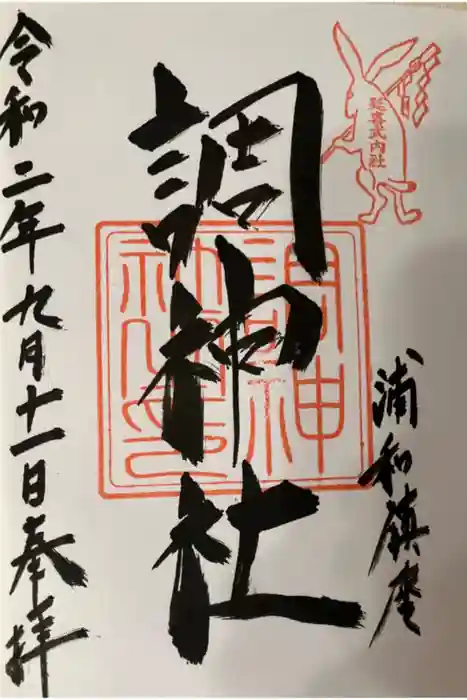 延喜式内社
浦和鎮座
調神社
調神
社之印
令和二年九月十一日奉拝